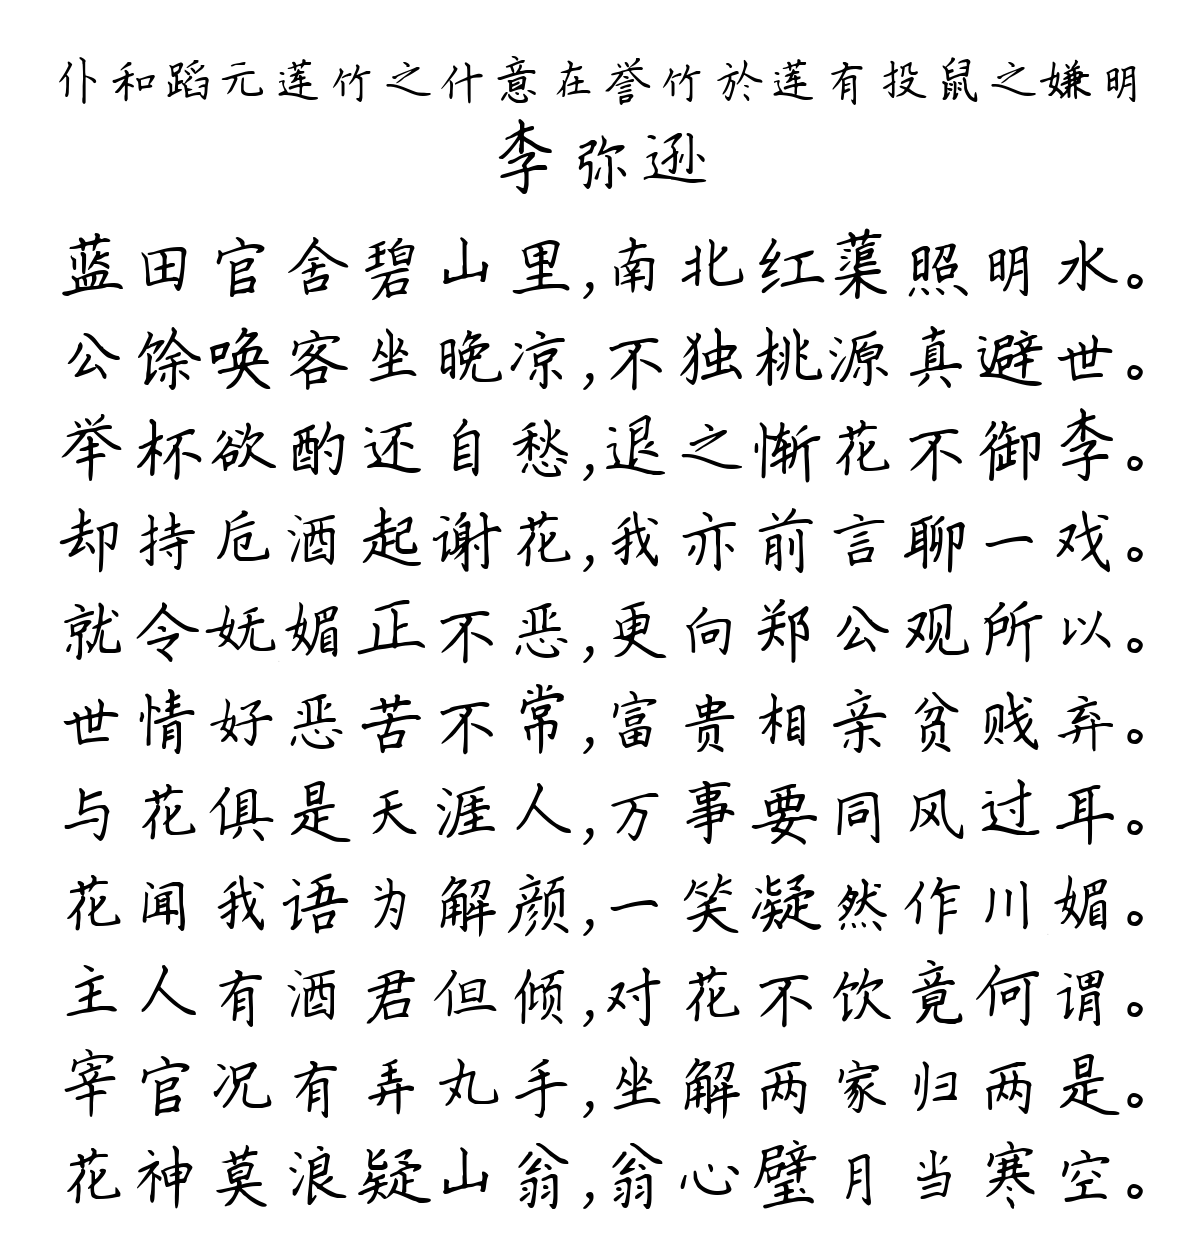 仆和蹈元莲竹之什意在誉竹於莲有投鼠之嫌明
李弥逊
蓝田官舍碧山里,南北红蕖照明水。
公馀唤客坐晚凉,不独桃源真避世。
举杯欲酌还自愁,退之惭花不御李。
却持卮酒起谢花,我亦前言聊一戏。
就令妩媚正不恶,更向郑公观所以。
世情好恶苦不常,富贵相亲贫贱弃。
与花俱是天涯人,万事要同风过耳。
花闻我语为解颜,一笑凝然作川媚。
主人有酒君但倾,对花不饮竟何谓。
宰官况有弄丸手,坐解两家归两是。
花神莫浪疑山翁,翁心璧月当寒空。